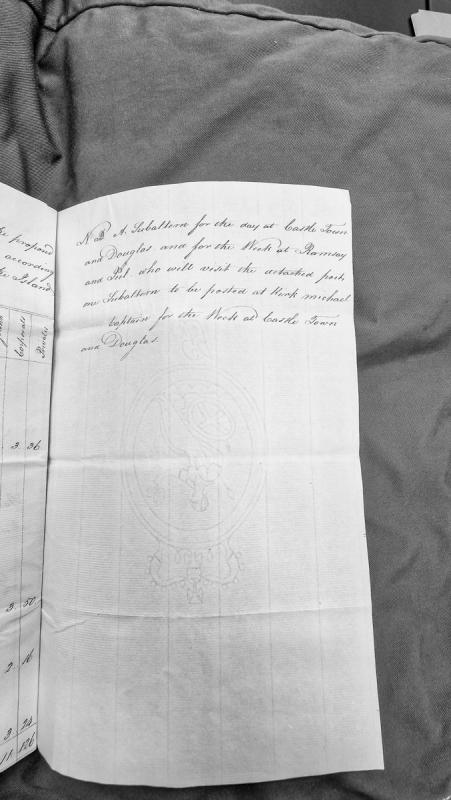 be prepaid
according
Island
Corporals
Privates
3 36
3 50
2 16
3 24
11 126
NB A Subaltern for the day at Castle Town
and Douglas and for the Week at Ramsay
and Peel who will visit the detached posts
one Subaltern to be posted at Kirk michael
Captain for the Week at Castle Town
and Douglas.